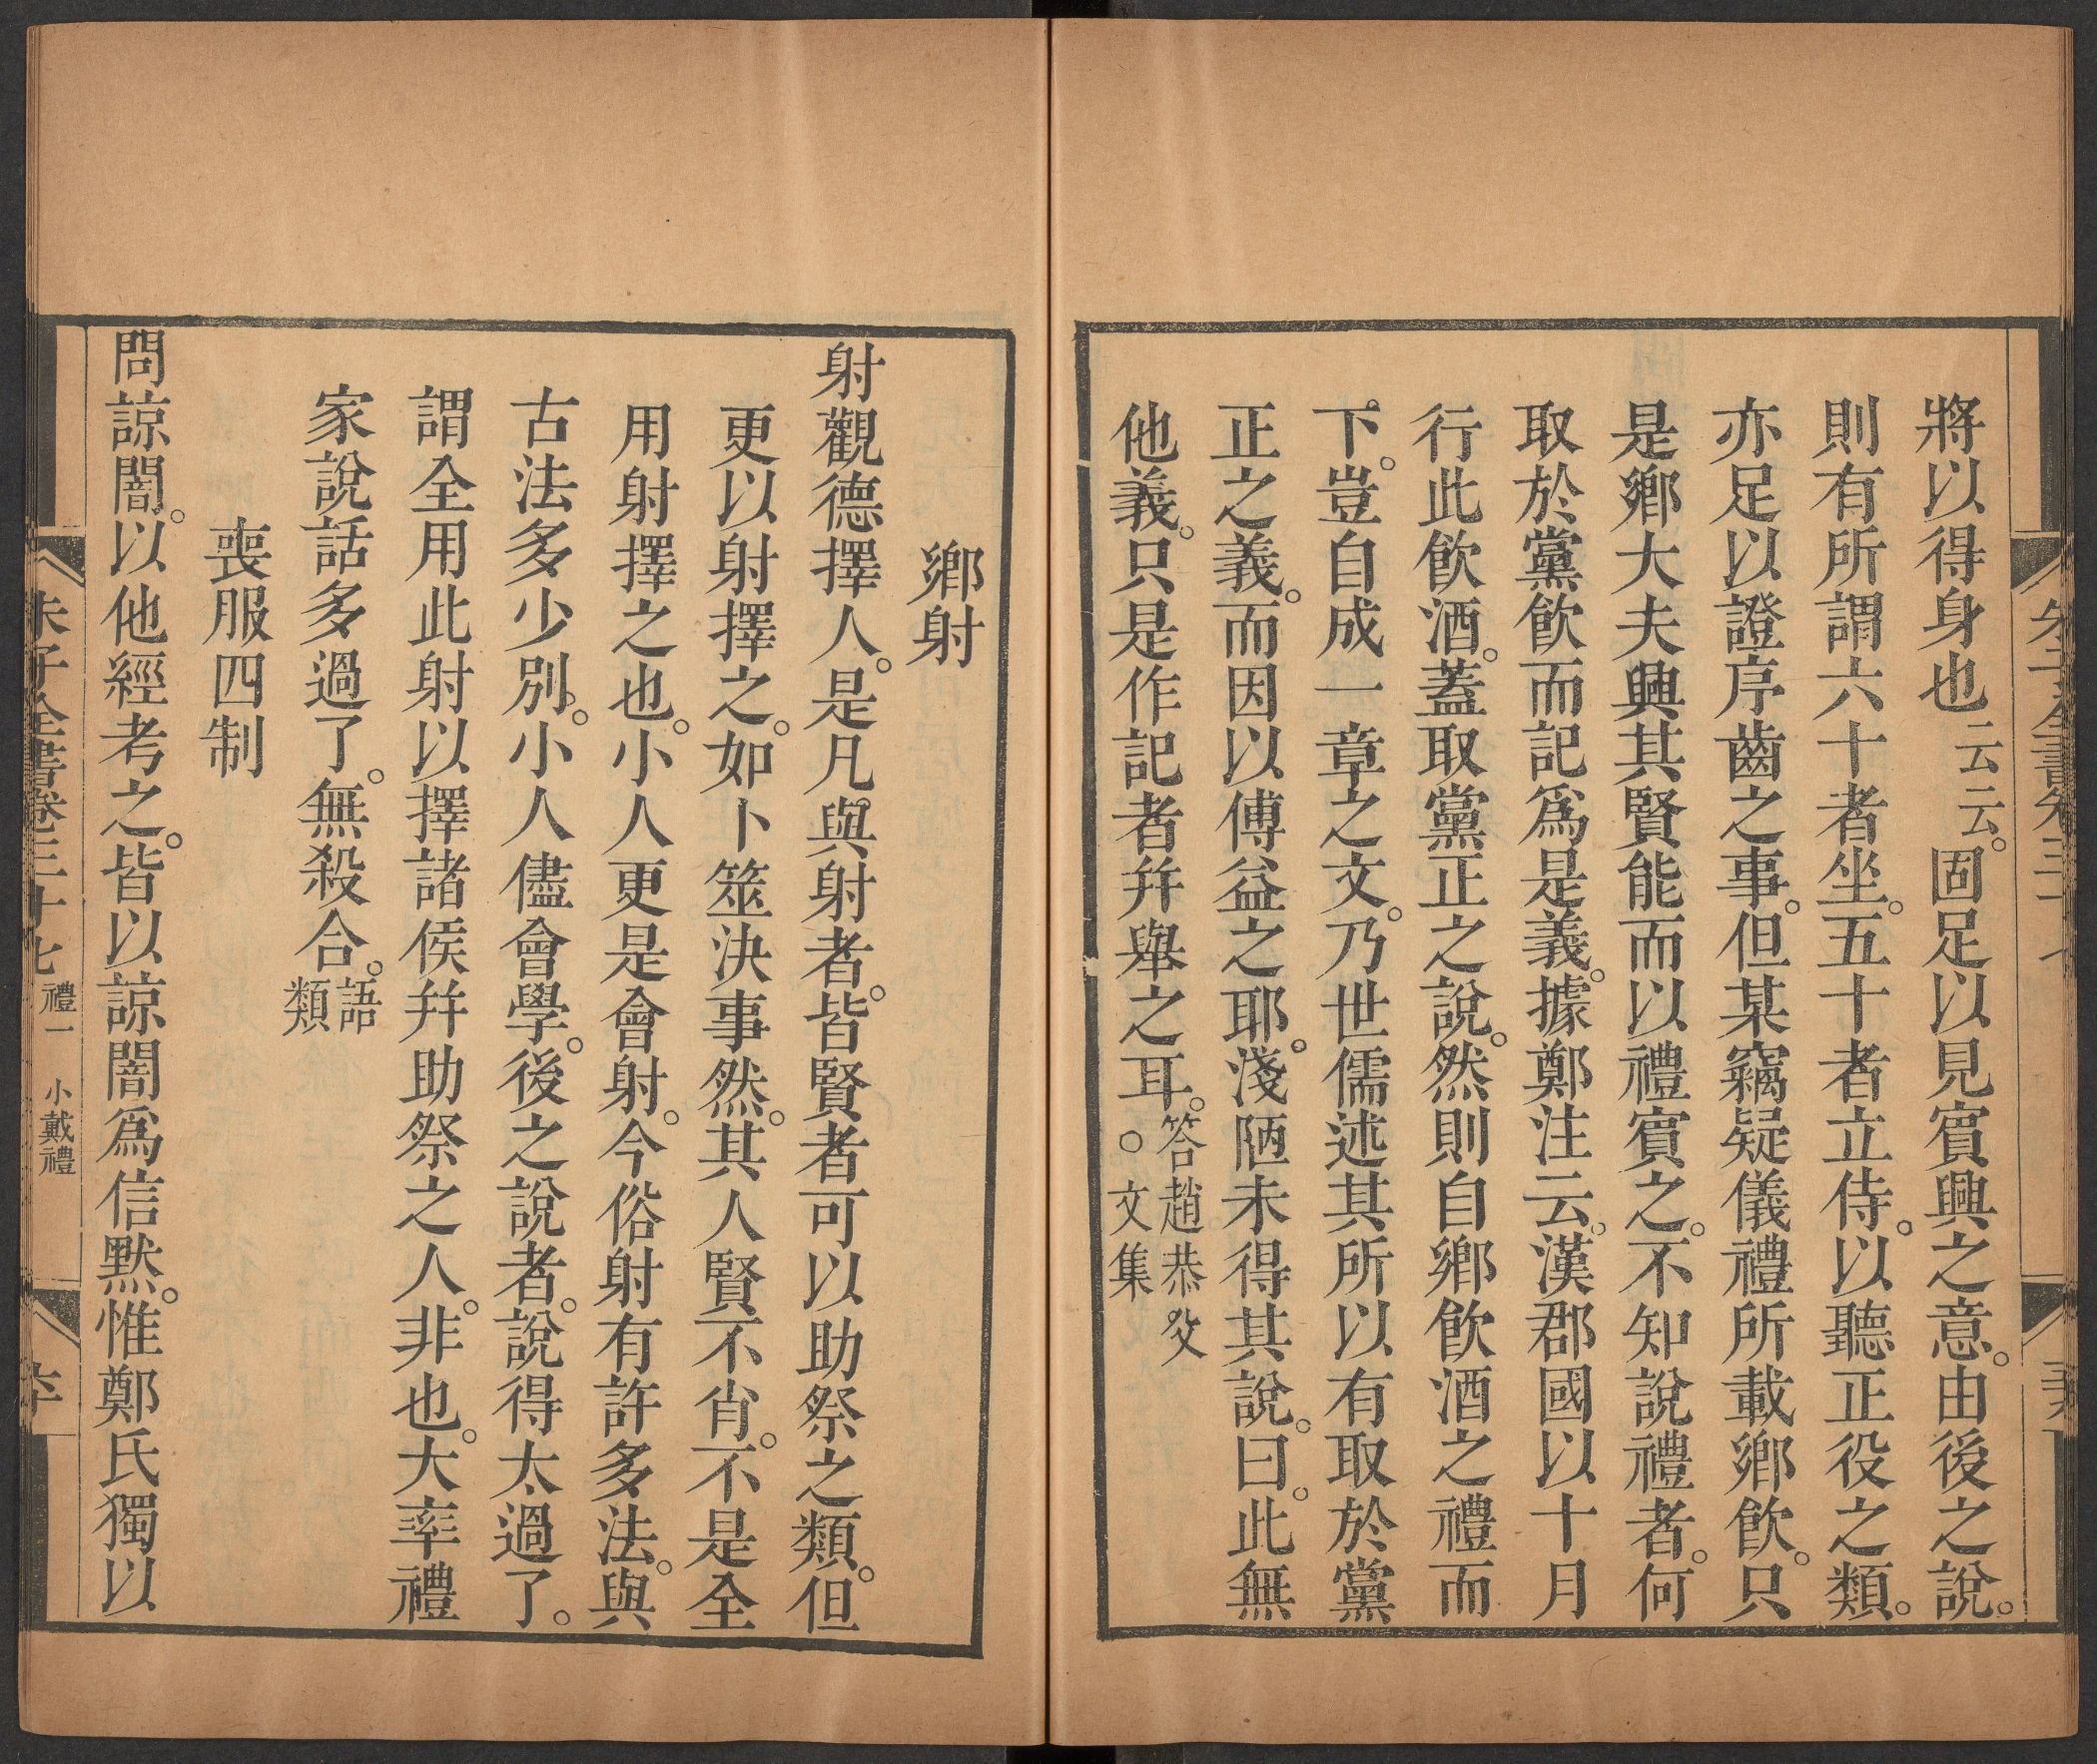 將以得身也云云。固足以見賓興之意。由後之說。
則有所謂六十者坐。五十者立侍。以聽正役之類。
亦足以證序齒之事。但某竊疑儀禮所載鄉飲。只
是鄉大夫興其賢能而以禮賓之。不知說禮者。何
取於黨飲而記爲是義。據鄭注云。漢郡國以十月
行此飲酒。蓋取黨正之說。然則自鄉飲酒之禮而
下。豈自成一章之文。乃世儒述其所以有取於黨
正之義。而因以傅益之耶。淺陋未得其說。曰。此無
他義。只是作記者幷舉之耳。答趙恭父。文集
鄉射
射觀德擇人。是凡與射者。皆賢者可以助祭之類。但
更以射擇之。如卜筮決事然。其人賢不肖。不是全
用射擇之也。小人更是會射。今俗射有許多法。與
古法多少別。小人儘會學。後之說者。說得太過了。
謂全用此射以擇諸侯幷助祭之人。非也。大率禮
家說話多過了。無殺合。語類
喪服四制
問諒闇。以他經考之。皆以諒闇爲信默。惟鄭氏獨以
朱子全書卷三十七 禮一 小戴禮